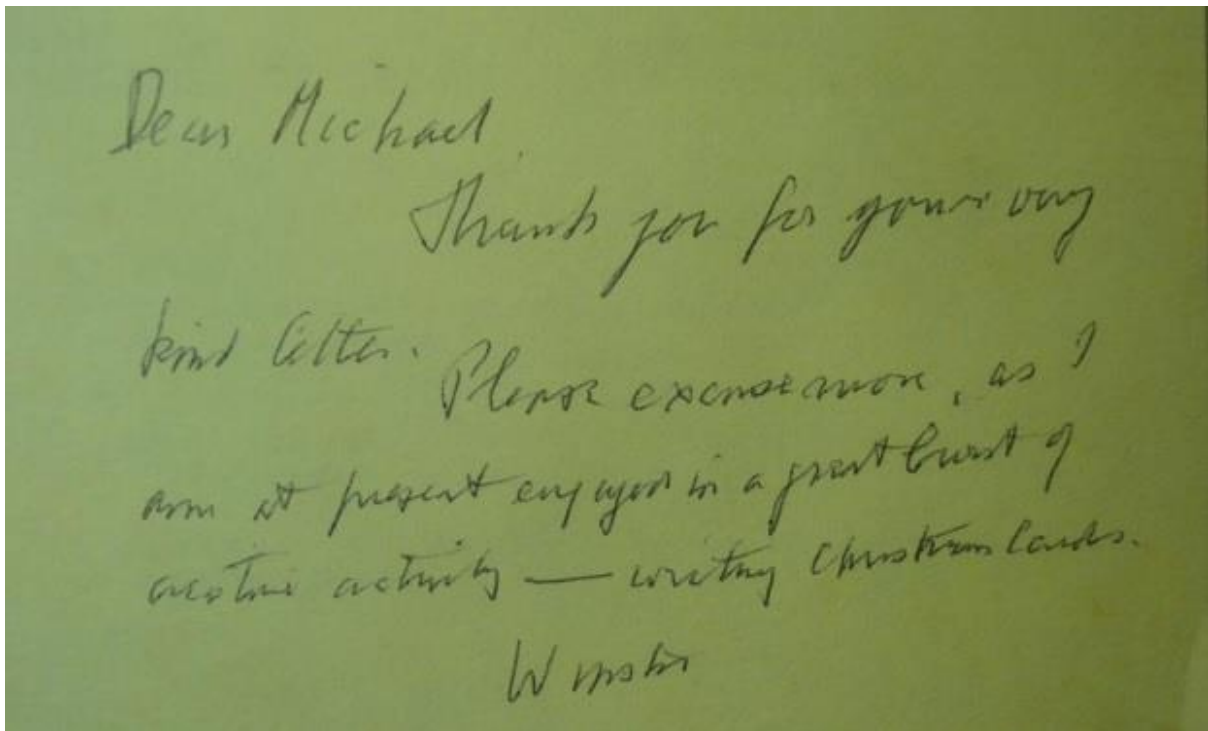 Dear Michael
Thank you for your very
kind letter.
Please excuse more, as I
am at present engaged in a great burst of
creative activity — writing Christmas Cards.